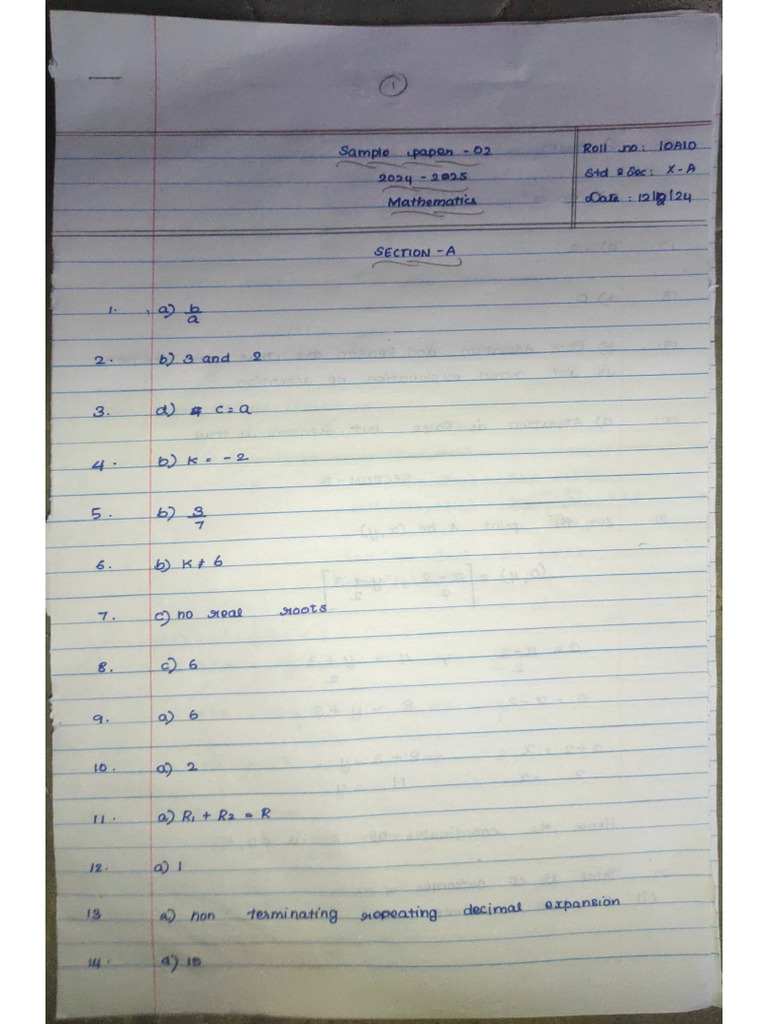 1
Sample paper - 02
2024 - 2025
Mathematics
Roll no: 10A10
Std & Sec: X - A
Date: 12/12/24
SECTION - A
1. a) b/a
2. b) 3 and 2
3. d) c = a
4. b) K = -2
5. b) 3/7
6. b) K ≠ 6
7. c) no real roots
8. c) 6
9. a) 6
10. a) 2
11. a) R1 + R2 = R
12. a) 1
13 a) non terminating repeating decimal expansion
14.